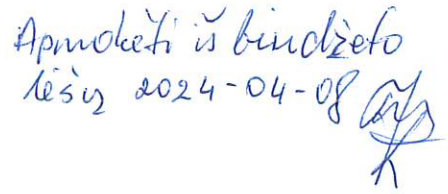 Apmokėti iš biudžeto
lėšų 2024-04-08